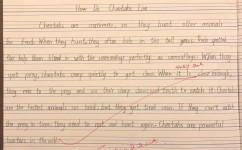 How Do Cheetahs Live
Cheetahs are carnivores, so they hunt other animals
for food. When they hunt, they often hide in the tall grass. Their spotted
fur help them blend in with the surroundings perfectly as camouflage. When they
spot prey, cheetahs creep quietly to get close. When it is close enough,
they are
they run to the prey and use their sharp claws and teeth to catch it. Cheetahs
are the fastest animals on land, but they get tired soon. If they can't catch
the prey in time, they need to rest and hunt again. Cheetahs are powerful
hunters in the wild.